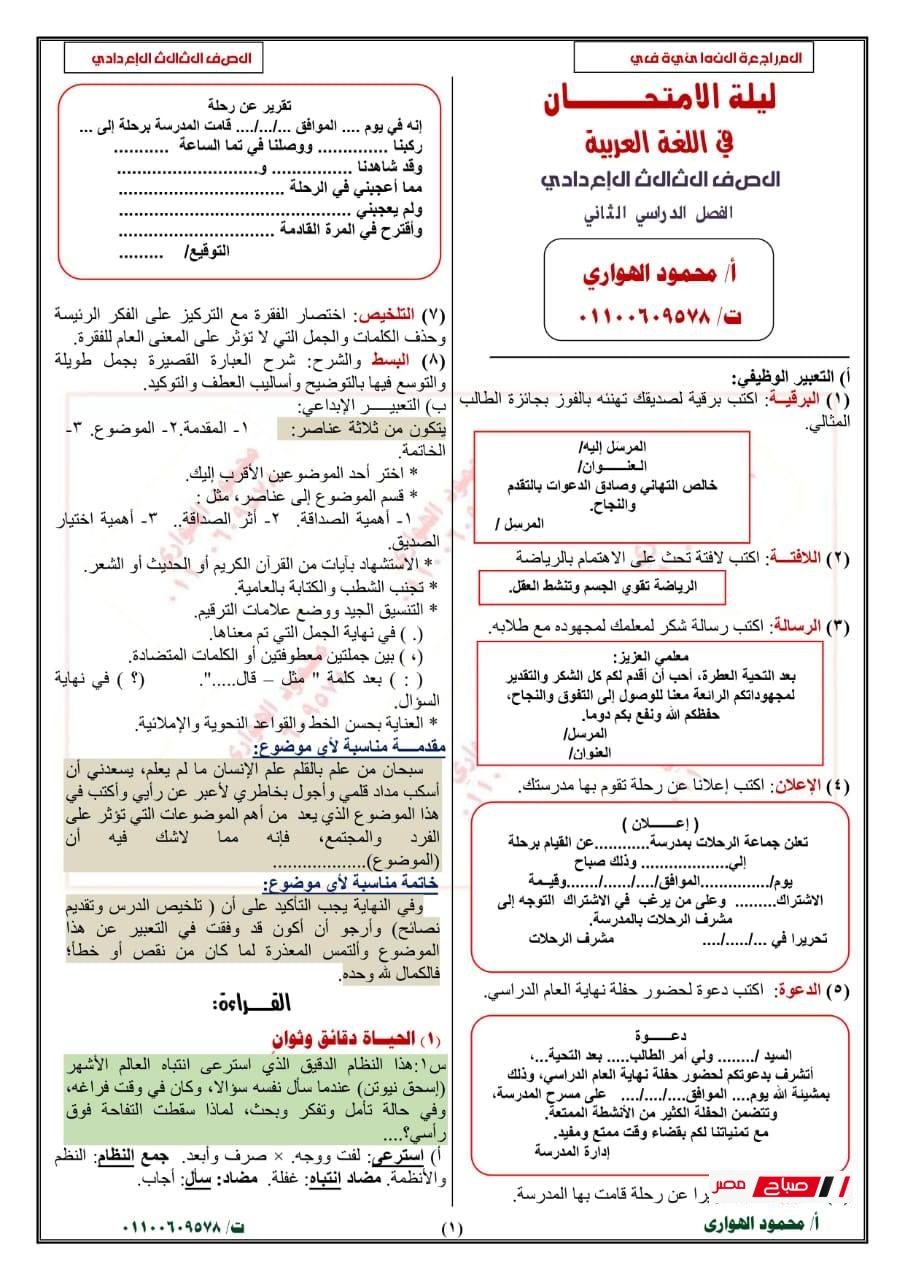 المراجعة النهائية في
الصف الثالث الإعدادي
ليلة الامتحـــــــان
في اللغة العربية
الصف الثالث الإعدادي
الفصل الدراسي الثاني
أ/ محمود الهواري
ت/ ٠١١٠٠٦٠٩٥٧٨
أ) التعبير الوظيفي:
(١) البرقيـة: اكتب برقية لصديقك تهنئه بالفوز بجائزة الطالب
المثالي.
المرسَل إليه/
العنـــوان/
خالص التهاني وصادق الدعوات بالتقدم
والنجاح.
المرسل /
(٢) اللافتـــة: اكتب لافتة تحث على الاهتمام بالرياضة
الرياضة تقوي الجسم وتنشط العقل.
(٣) الرسالة: اكتب رسالة شكر لمعلمك لمجهوده مع طلابه.
معلمي العزيز:
بعد التحية العطرة، أحب أن أقدم لكم كل الشكر والتقدير
لمجهوداتكم الرائعة معنا للوصول إلى التفوق والنجاح،
حفظكم الله ونفع بكم دوما.
المرسل/
العنوان/
(٤) الإعلان: اكتب إعلانا عن رحلة تقوم بها مدرستك.
( إعـــــلان )
تعلن جماعة الرحلات بمدرسة............عن القيام برحلة
إلي................... وذلك صباح
يوم/...............الموافق/..../....../.......وقيـمة
الاشتراك......... وعلى من يرغب في الاشتراك التوجه إلى
مشرف الرحلات بالمدرسة.
تحريرا في .../...../.... مشرف الرحلات
(٥) الدعوة: اكتب دعوة لحضور حفلة نهاية العام الدراسي.
دعـــوة
السيد /........ ولي أمر الطالب..... بعد التحية...،
أتشرف بدعوتكم لحضور حفلة نهاية العام الدراسي، وذلك
بمشيئة الله يوم.... الموافق..../..../.... على مسرح المدرسة،
وتتضمن الحفلة الكثير من الأنشطة الممتعة.
مع تمنياتنا لكم بقضاء وقت ممتع ومفيد.
إدارة المدرسة
را عن رحلة قامت بها المدرسة.
صباح مصر
تقرير عن رحلة
إنه في يوم .... الموافق .../.../.... قامت المدرسة برحلة إلى ...
ركبنا .............. ووصلنا في تما الساعة ...........
وقد شاهدنا ................ و............................
مما أعجبني في الرحلة .................................
ولم يعجبني ..............................................
وأقترح في المرة القادمة ...............................
التوقيع/ .........
(٧) التلخيص: اختصار الفقرة مع التركيز على الفكر الرئيسة
وحذف الكلمات والجمل التي لا تؤثر على المعنى العام للفقرة.
(٨) البسط والشرح: شرح العبارة القصيرة بجمل طويلة
والتوسع فيها بالتوضيح وأساليب العطف والتوكيد.
ب) التعبيـــــر الإبداعي:
يتكون من ثلاثة عناصر: ١- المقدمة.٢- الموضوع. ٣-
الخاتمة.
* اختر أحد الموضوعين الأقرب إليك.
* قسم الموضوع إلى عناصر، مثل :
١- أهمية الصداقة. ٢- أثر الصداقة.. ٣- أهمية اختيار
الصديق.
* الاستشهاد بآيات من القرآن الكريم أو الحديث أو الشعر.
* تجنب الشطب والكتابة بالعامية.
* التنسيق الجيد ووضع علامات الترقيم.
(. ) في نهاية الجمل التي تم معناها.
(، ) بين جملتين معطوفتين أو الكلمات المتضادة.
( : ) بعد كلمة " مثل – قال.....". (؟ ) في نهاية
السؤال.
* العناية بحسن الخط والقواعد النحوية والإملائية.
مقدمـــة مناسبة لأي موضوع:
سبحان من علم بالقلم علم الإنسان ما لم يعلم، يسعدني أن
أسكب مداد قلمي وأجول بخاطري لأعبر عن رأيي وأكتب في
هذا الموضوع الذي يعد من أهم الموضوعات التي تؤثر على
الفرد والمجتمع، فإنه مما لاشك فيه أن
(الموضوع)...................
خاتمة مناسبة لأي موضوع:
وفي النهاية يجب التأكيد على أن ( تلخيص الدرس وتقديم
نصائح) وأرجو أن أكون قد وفقت في التعبير عن هذا
الموضوع وألتمس المعذرة لما كان من نقص أو خطأ؛
فالكمال لله وحده.
القــراءة:
(١) الحيـاة دقائق وثوانٍ
س١:هذا النظام الدقيق الذي استرعى انتباه العالم الأشهر
(إسحق نيوتن) عندما سأل نفسه سؤالا، وكان في وقت فراغه،
وفي حالة تأمل وتفكر وبحث، لماذا سقطت التفاحة فوق
رأسي؟....
أ) استرعى: لفت ووجه. × صرف وأبعد. جمع النظام: النظم
والأنظمة. مضاد انتباه: غفلة. مضاد: سأل: أجاب.
أ/ محمود الهواري
(١)
ت/ ٠١١٠٠٦٠٩٥٧٨